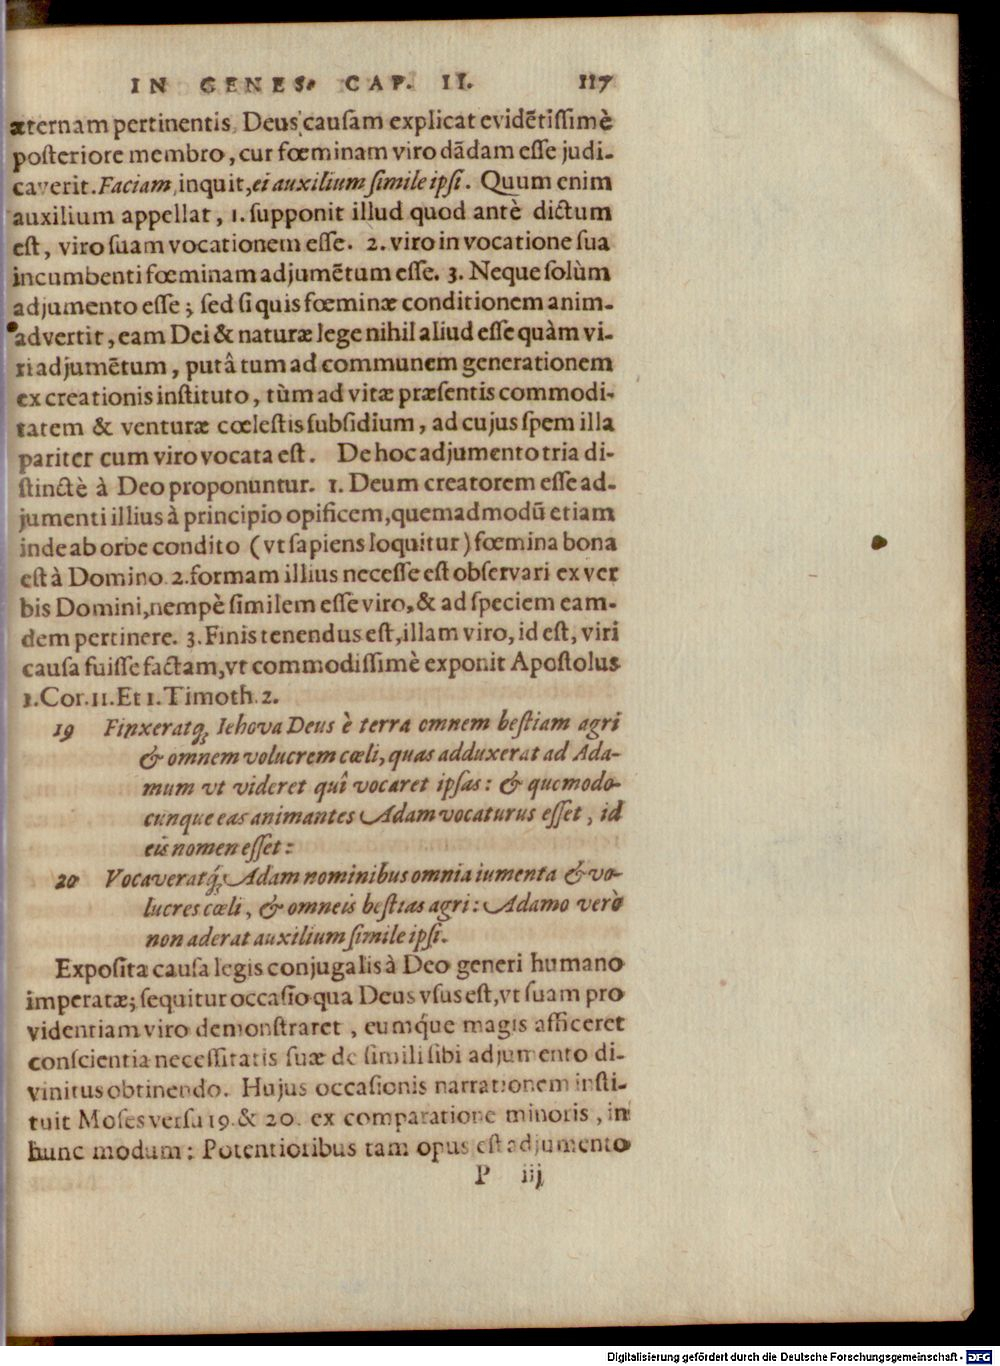 IN GENES. CAP. II. 117
æternam pertinentis, Deus causam explicat evidẽtissimè
posteriore membro, cur fœminam viro dãdam esse judi-
caverit. Faciam, inquit, ei auxilium simile ipsi. Quum enim
auxilium appellat, 1. supponit illud quod antè dictum
est, viro suam vocationem esse. 2. viro in vocatione sua
incumbenti fœminam adjumẽtum esse. 3. Neque solùm
adjumento esse; sed si quis fœminæ conditionem anim-
advertit, eam Dei & naturæ lege nihil aliud esse quàm vi-
ri adjumẽtum, putâ tum ad communem generationem
ex creationis instituto, tùm ad vitæ præsentis commodi-
tatem & venturæ cœlestis subsidium, ad cujus spem illa
pariter cum viro vocata est. De hoc adjumento tria di-
stinctè à Deo proponuntur. 1. Deum creatorem esse ad-
jumenti illius à principio opificem, quemadmodũ etiam
inde ab orbe condito (vt sapiens loquitur) fœmina bona
est à Domino. 2. formam illius necesse est observari ex ver
bis Domini, nempè similem esse viro, & ad speciem eam-
dem pertinere. 3. Finis tenendus est, illam viro, id est, viri
causa fuisse factam, vt commodissimè exponit Apostolus
1. Cor. 11. Et 1. Timoth. 2.
19 Finxeratq; Iehova Deus è terra omnem bestiam agri
& omnem volucrem cœli, quas adduxerat ad Ada-
mum vt videret quî vocaret ipsas: & quemodo-
cunque eas animantes Adam vocaturus esset, id
eis nomen esset:
20 Vocaveratq́; Adam nominibus omnia iumenta & vo-
lucres cœli, & omneis bestias agri: Adamo verò
non aderat auxilium simile ipsi.
Exposita causa legis conjugalis à Deo generi humano
imperatæ; sequitur occasio qua Deus vsus est, vt suam pro
videntiam viro demonstraret, eumq́ue magis afficeret
conscientia necessitatis suæ de simili sibi adjumento di-
vinitus obtinendo. Hujus occasionis narrationem insti-
tuit Moses versu 19. & 20. ex comparatione minoris, in
hunc modum: Potentioribus tam opus est adjumento
P iij
Digitalisierung gefördert durch die Deutsche Forschungsgemeinschaft - DFG